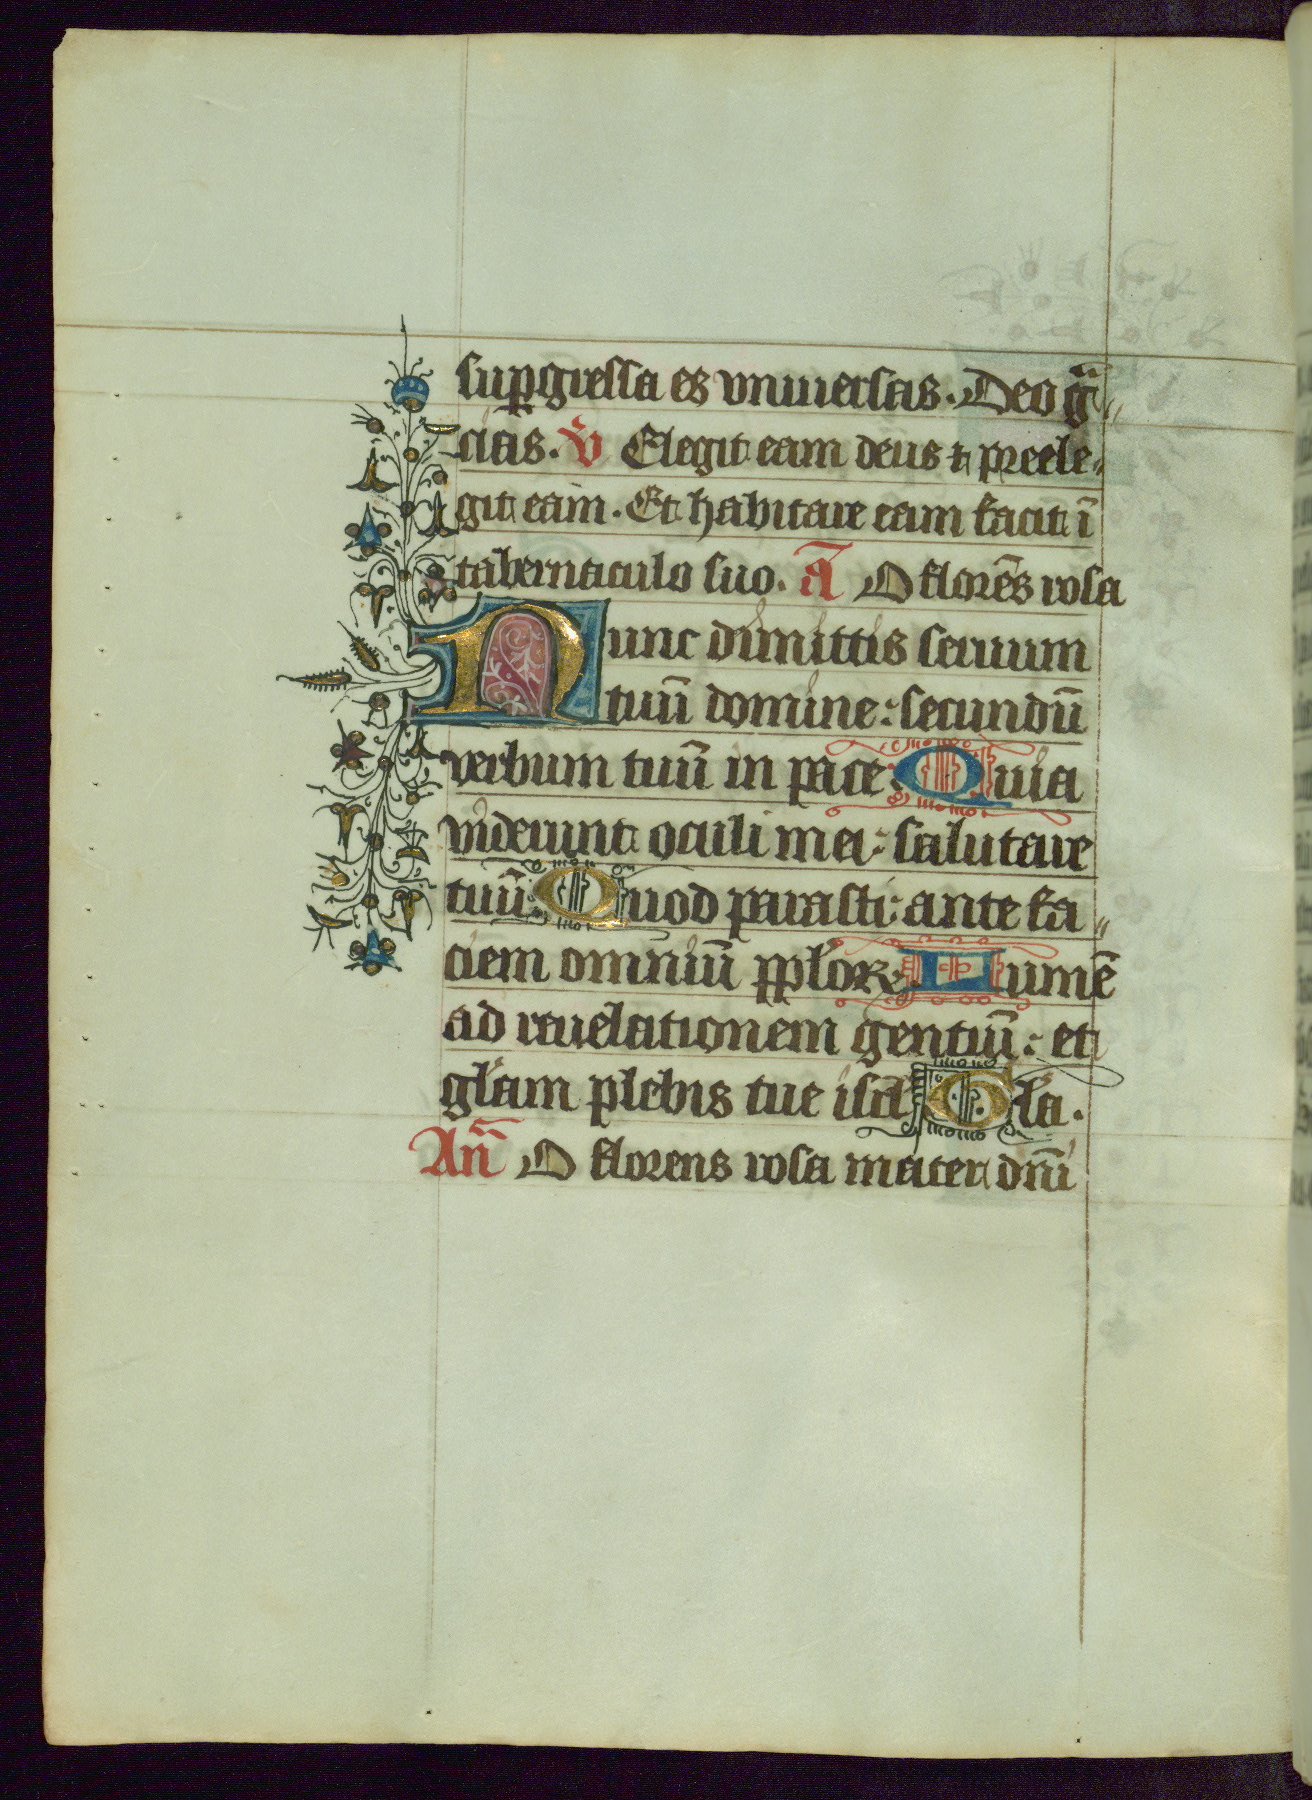 sup̱gressa es vniuersas. Deo gr̃a„
cias. V̄ Elegit eam deus ⁊ preele„
git eam. Et habitare eam facit ī
tabernaculo suo. ā O florēs rosa
Nunc dimittis seruum
tuū domine: secundū
verbum tuū in pace. Quia
viderunt oculi mei: salutare
tuū. Quod parasti: ante fa„
ciem omniū pplor̄. Lumē
ad reuelationem gentiū: et
glam plebis tue isrl. Gla.
An̄ O florens rosa mater dn̄i